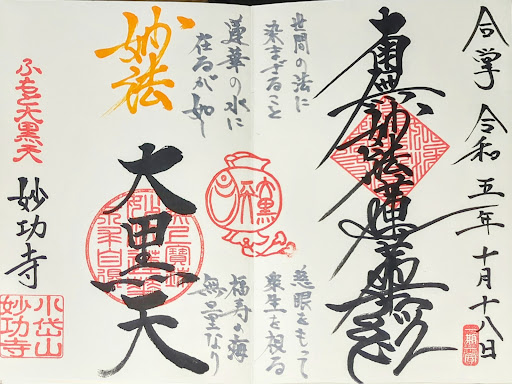 合掌 令和五年十月十八日
南無妙法蓮華経
世間の法に
染まざること
蓮華の水に
在るが如し
慈眼をもって
衆生を視る
福寿の海
無量なり
妙法
大黒天
ふもと大黒天
妙功寺
小岱山
妙功寺